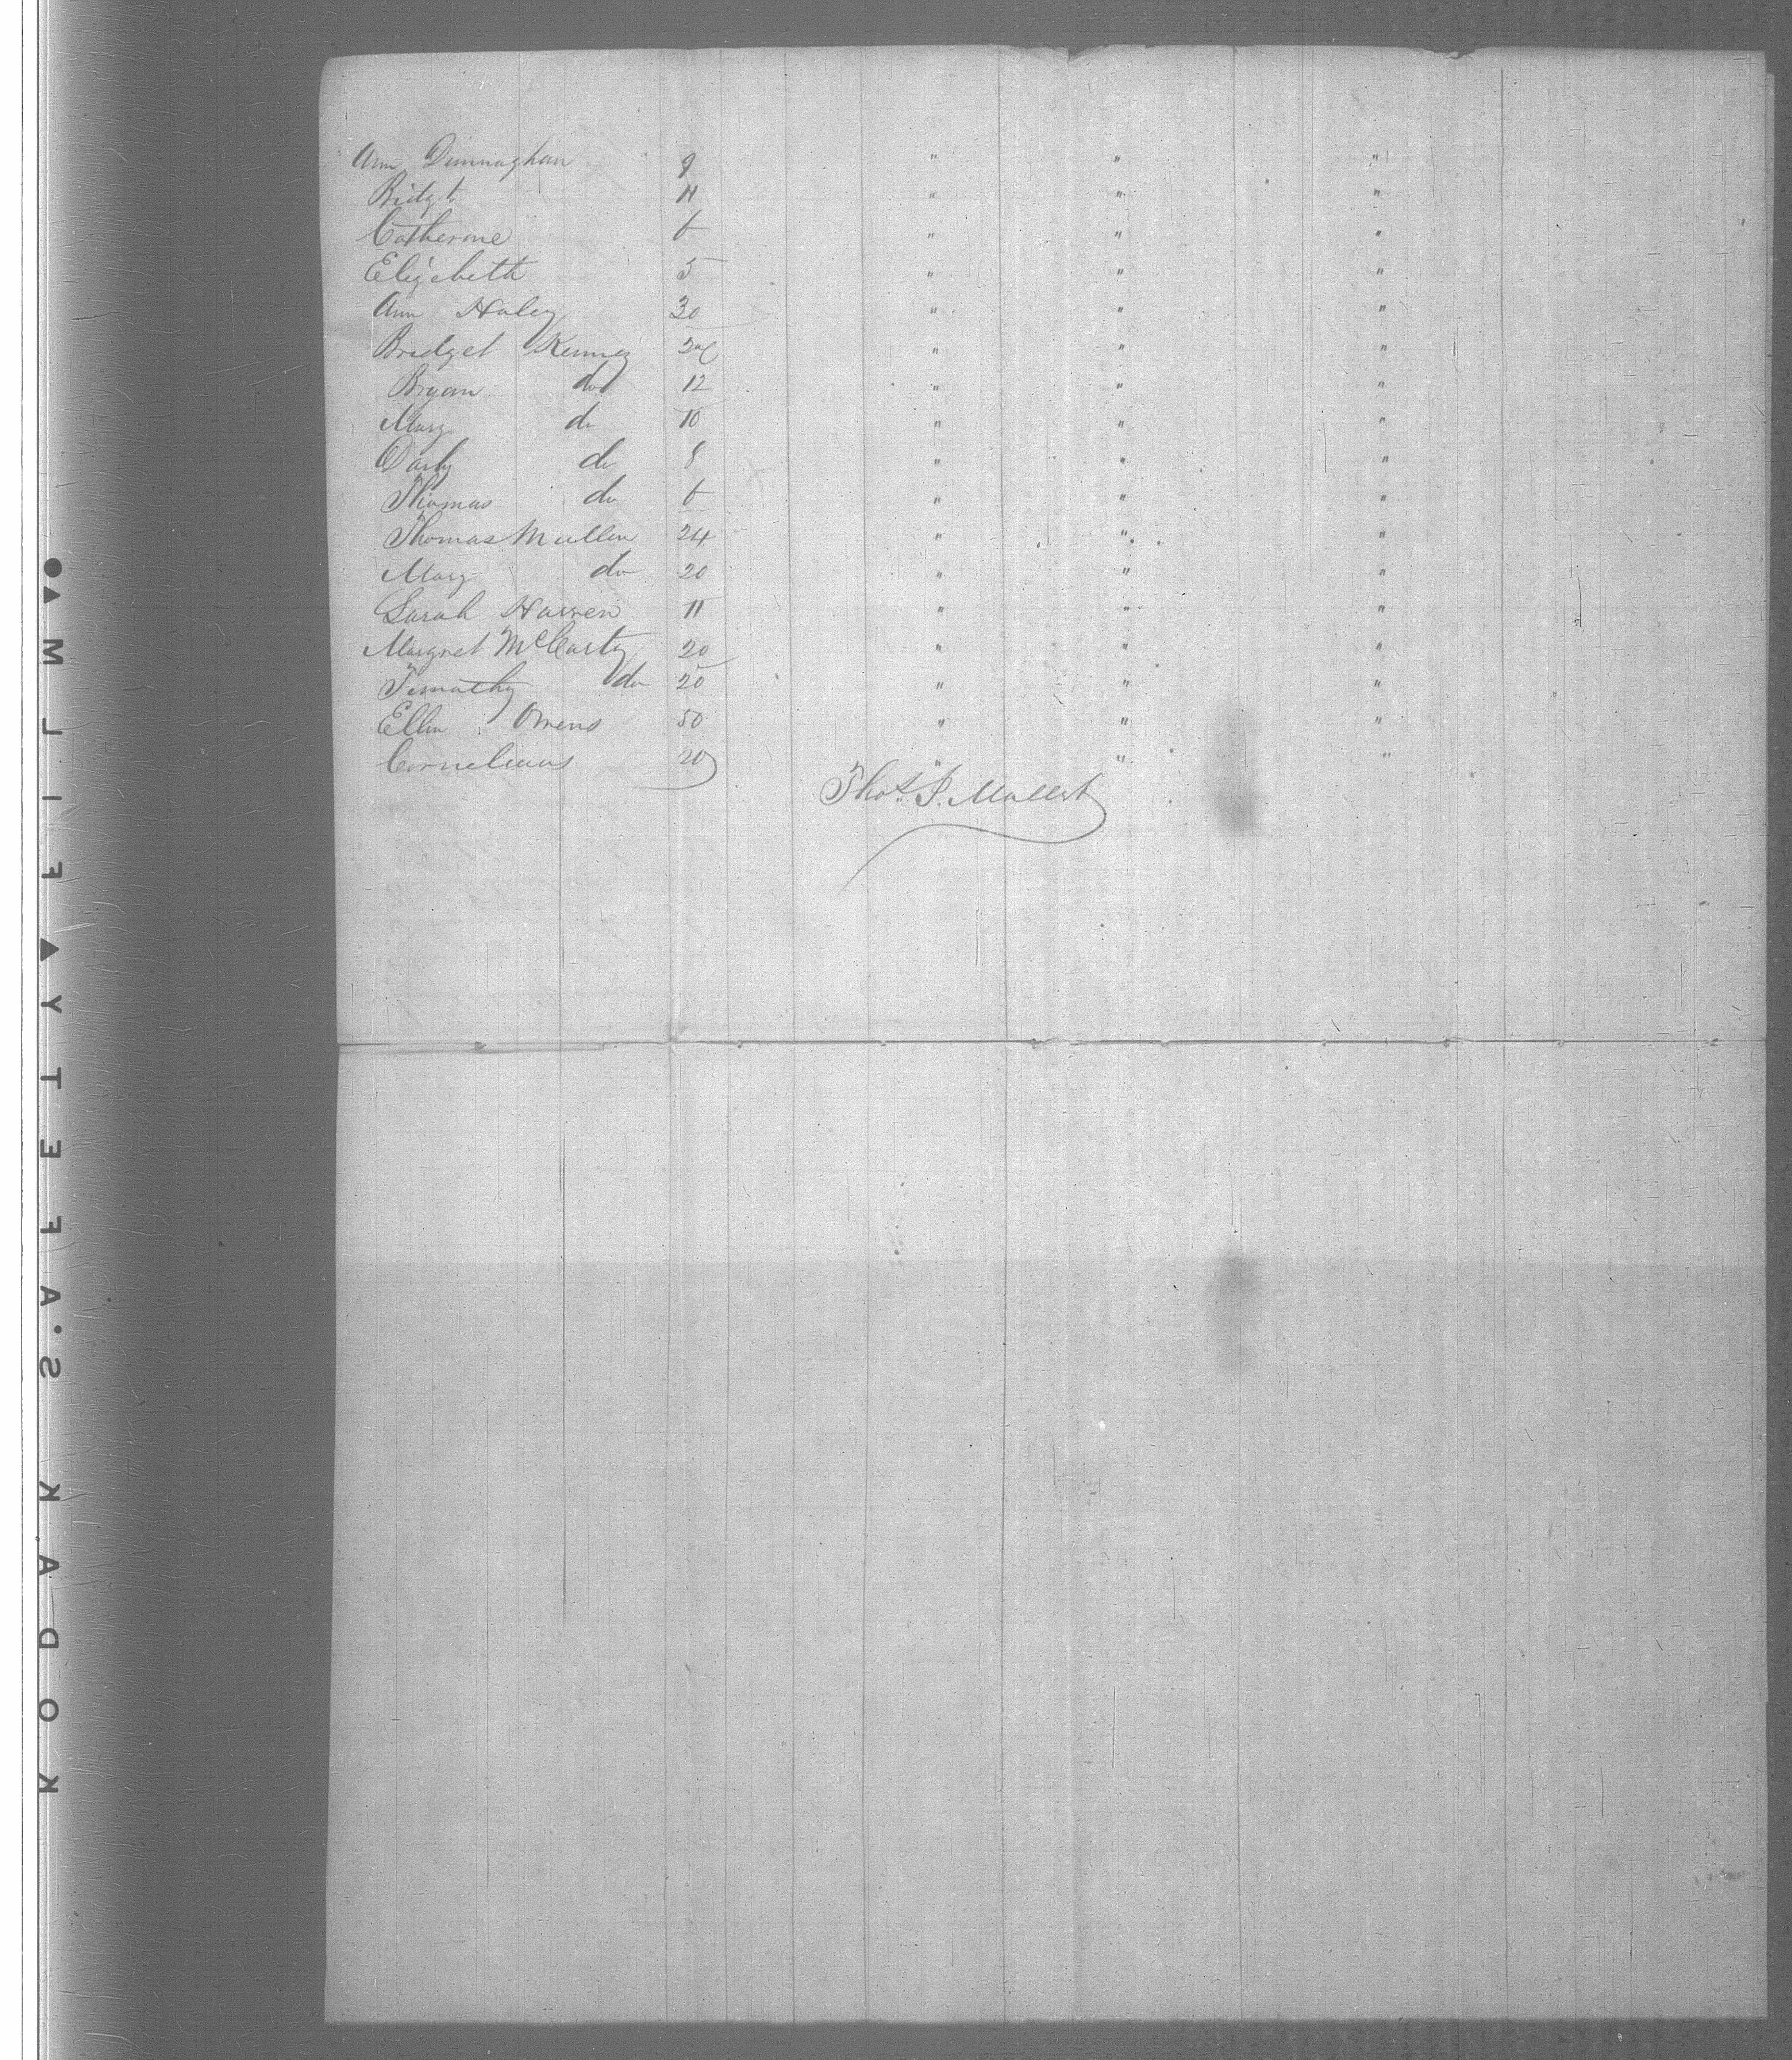 Ann Dunnaghan 9 " " "
Bridgt 11 " " "
Catherine 6 " " "
Elizebeth 5 " " "
Ann Haley 30 " " "
Bridget Kenney " " "
Bryan do 12 " " "
Mary do 10 " " "
Darby do 8 " " "
Thomas do 6 " " "
Thomas Mullen 24 " " "
Mary do 20 " " "
Sarah 11 " " "
Margret McCarty 20 " " "
Timothy do 20 " " "
Ellen Owens 50 " " "
Cornelieus 20 " " "
Thos. P. Mallert
KODAK · SAFETY ▲ FILM ▲●